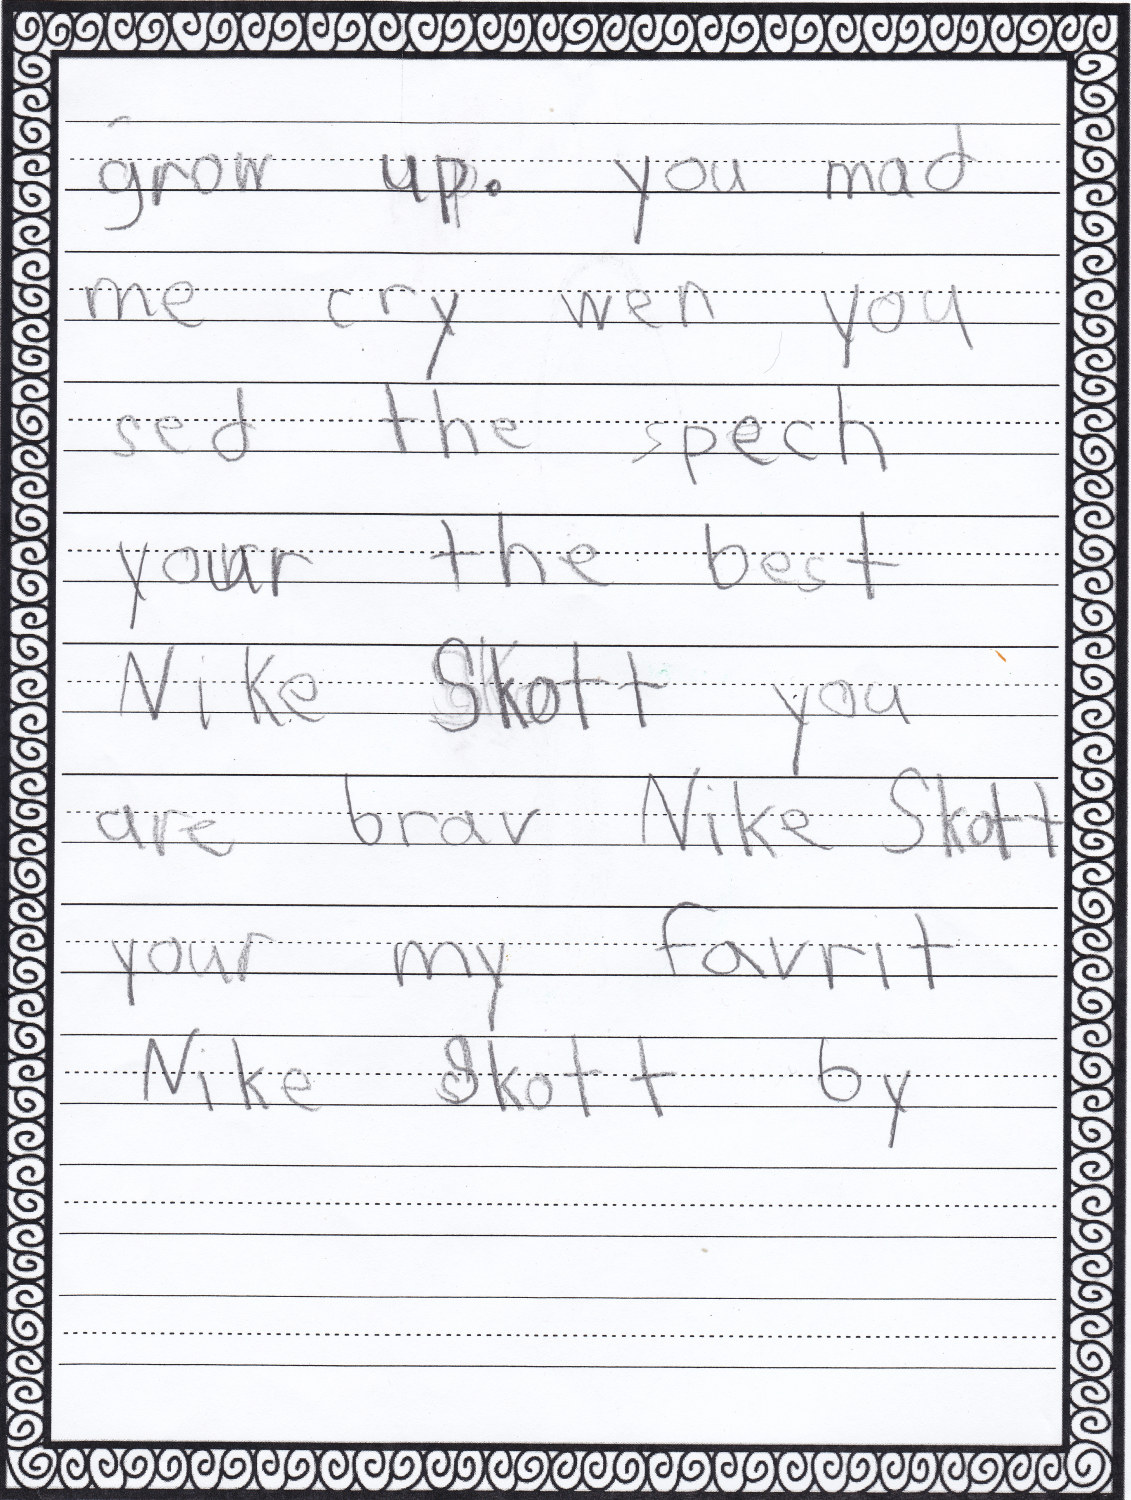 grow up. you mad
me cry wen you
sed the spech
your the best
Nike Skott you
are brav Nike Skott
your my favrit
Nike Skott by